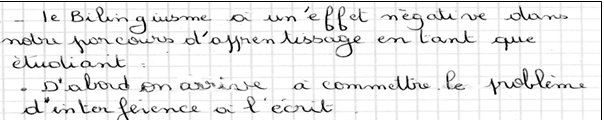 - le Bilinguisme a un'effet négative dans
notre parcours d'apprentissage en tant que
étudiant :
. D'abord on arrive à commettre le problème
d'interférence à l'écrit